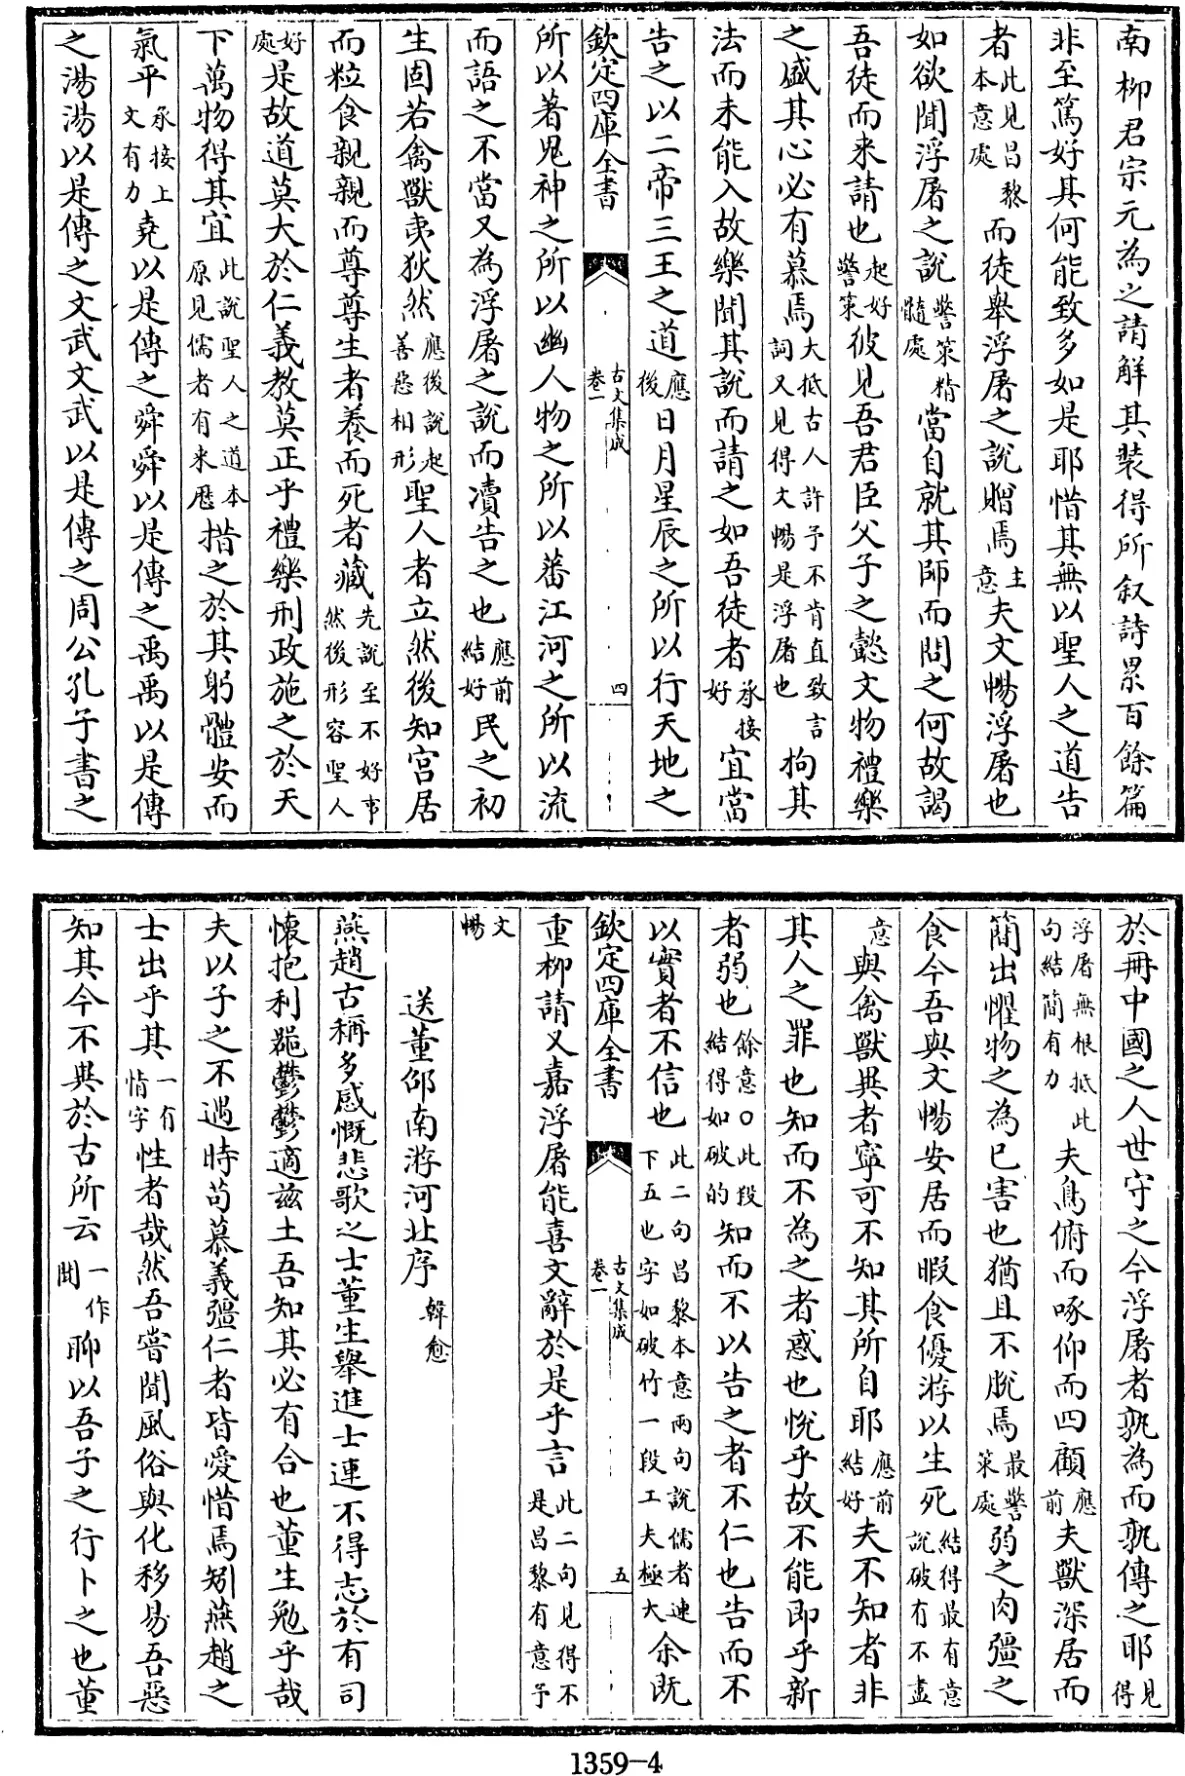 南柳君宗元為之請解其裝得所叙詩累百餘篇
非至篤好其何能致多如是耶惜其無以聖人之道告
者此見昌黎本意處而徒舉浮屠之說贈焉主意夫文暢浮屠也
如欲聞浮屠之說警策精髓處當自就其師而問之何故謁
吾徒而來請也起好警策彼見吾君臣父子之懿文物禮樂
之盛其心必有慕焉大抵古人許予不肯直致言詞又見得文暢是浮屠也拘其
法而未能入故樂聞其說而請之如吾徒者承接好宜當
告之以二帝三王之道應後日月星辰之所以行天地之
欽定四庫全書
古文集成
卷一
四
所以著鬼神之所以幽人物之所以蕃江河之所以流
而語之不當又為浮屠之說而瀆告之也應前結好民之初
生固若禽獸夷狄然應後說起善惡相形聖人者立然後知宮居
而粒食親親而尊尊生者養而死者藏先說至不好事然後形容聖人
好處是故道莫大於仁義教莫正乎禮樂刑政施之於天
下萬物得其宜此說聖人之道本原見儒者有來歷措之於其躬體安而
氣平承接上文有力堯以是傳之舜舜以是傳之禹禹以是傳
之湯湯以是傳之文武文武以是傳之周公孔子書之
於冊中國之人世守之今浮屠者孰為而孰傳之耶見得
浮屠無根抵此句結簡有力夫鳥俯而啄仰而四顧應前夫獸深居而
簡出懼物之為已害也猶且不脫焉最警策處弱之肉彊之
食今吾與文暢安居而暇食優游以生死結得最有意說破有不盡
意與禽獸異者寧可不知其所自耶應前結好夫不知者非
其人之罪也知而不為之者惑也悅乎故不能即乎新
者弱也餘意○此段結得如破的知而不以告之者不仁也告而不
以實者不信也此二句昌黎本意兩句說儒者連下五也字如破竹一段工夫極大余既
欽定四庫全書
古文集成
卷一
五
重柳請又嘉浮屠能喜文辭於是乎言此二句見得不是昌黎有意予
文暢
送董邵南游河北序 韓愈
燕趙古稱多感慨悲歌之士董生舉進士連不得志於有司
懷抱利器鬱鬱適兹土吾知其必有合也董生勉乎哉
夫以子之不遇時苟慕義彊仁者皆愛惜焉矧燕趙之
士出乎其一有情字性者哉然吾嘗聞風俗與化移易吾惡
知其今不異於古所云一作聞聊以吾子之行卜之也董
1359-4